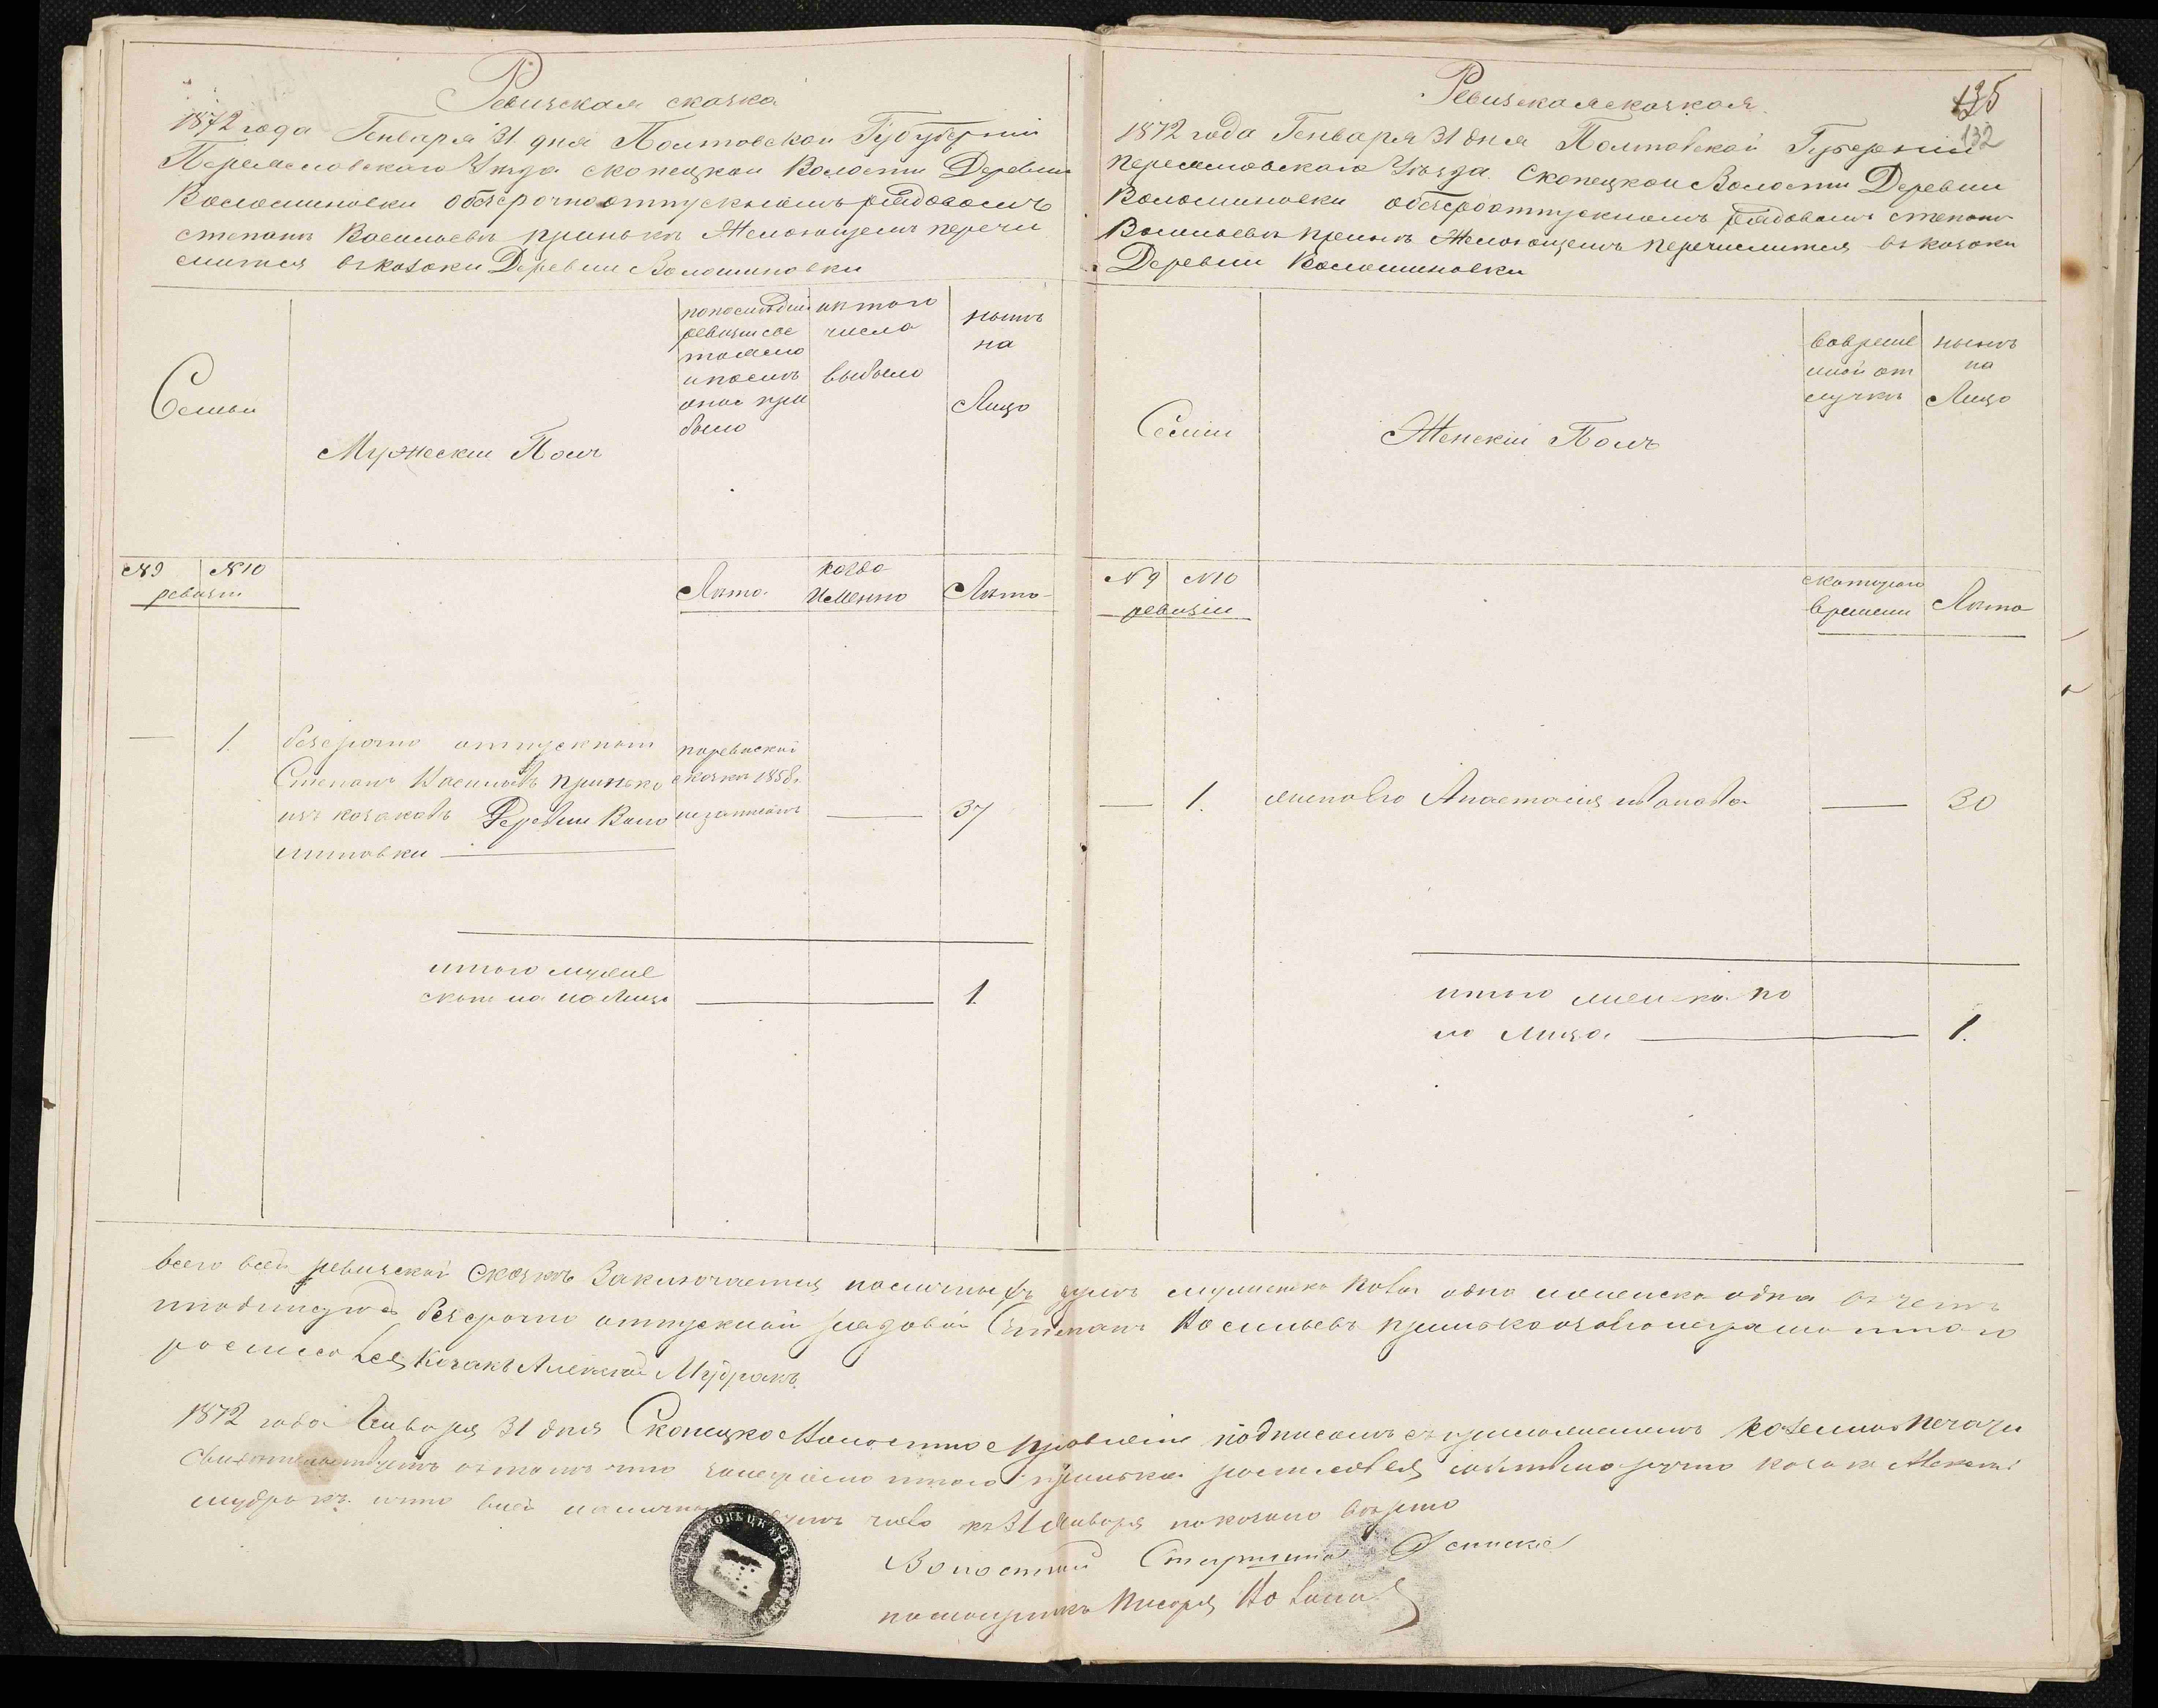 Ревизская сказка
1872 года Генваря 31 дня Полтовской Губуберніи
Переяславского Уезда скопецкой Волости Деревни
Волошиновки обезсрочноотпускномъ рядовомъ
степанъ Васильевъ принькъ Желающемъ перечи
слится вказаки Деревни Волошиновки
Семьи
Мужескии Полъ
попоследней
ревизии сос
тояло
ипосле
оное при
было
ис того
числа
выбыло
ныне
на
Лицо
№ 9 № 10
ревизи
Лета
когда
Именно
Лета
— 1. безсрочно отпускной
Степанъ Васильевъ принько
изъ козаковъ Деревни Воло
шиновки
поревиской
сказки 1858 г.
незаписанъ
— 37
итого мужес
скои на на Лицо — 1.
Ревизская сказкая
135
132
1872 года Генваря 31 дня Полтавской Губерніи
переяславскаго Уезда Скопецкой Волости Деревни
Волошиновки обезсроотпускномъ рядовомъ степанъ
Васильевъ принькъ Желающемъ перечислится вказаки
Деревни Волошиновки
Семіи
Женскіи Полъ
вовреме
нной от
лучке
ныне
на
Лицо
№ 9 № 10
ревизіи
скоторого
времени
Лета
— 1. Анастасия ивановва — 30
итого женска по
ла Лица — 1.
всего всей ревизской сказке Заключается наличныхъ душъ мужеска пола одна женска одна вчемъ
иподписуюсь безсрочно отпускной рядовой Степанъ Васильевъ принько неграмотного
росписался Козакъ Алексей Мудракъ
1872 года Генваря 31 дня Скопецкое Волостное правление подписомъ сприложениемъ Казенной печати
свидетельствуетъ втомъ что принька росписался козакъ Алексей
мудракъ ичто всей наличныхъ душъ к 31 Генваря показано
Волостной Старшина
помощникъ Писаря